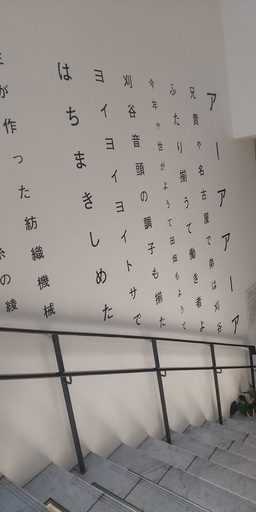 アーアアーア
兄貴ゃ名古屋で弟は刈谷
ふたり揃うて働き者よ
今年ゃ世がようて田畑もようて
刈谷音頭の調子も揃た
ヨイヨイヨイトサで
はちまきしめた
が作った紡織機械
の綾